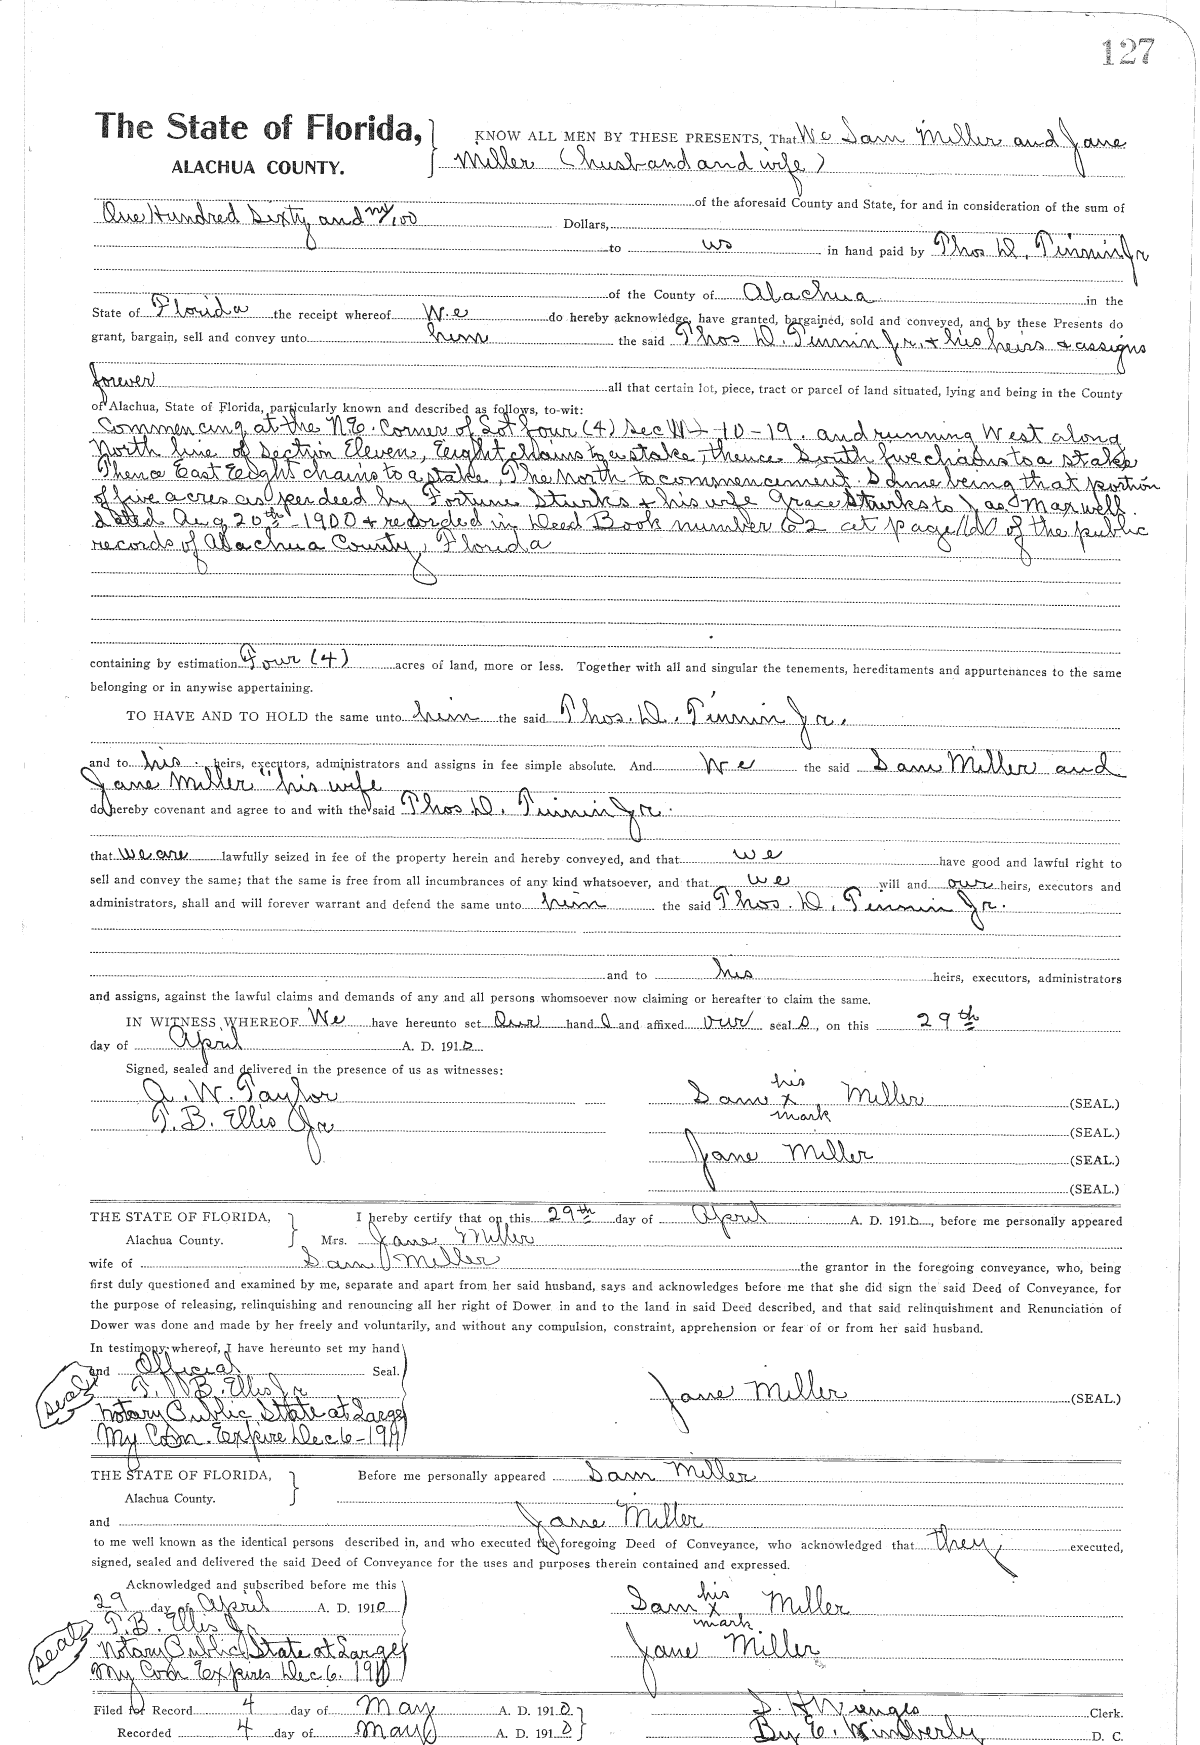 127
The State of Florida, KNOW ALL MEN BY THESE PRESENTS, That We Sam Miller and Jane
ALACHUA COUNTY. Miller (husband and wife)
of the aforesaid County and State, for and in consideration of the sum of
One Hundred Sixty and no/100 Dollars,
to us in hand paid by Thos D. Tinnin Jr
of the County of Alachua in the
State of Florida the receipt whereof We do hereby acknowledge, have granted, bargained, sold and conveyed, and by these Presents do
grant, bargain, sell and convey unto him the said Thos D. Tinnin Jr. + his heirs + assigns
forever all that certain lot, piece, tract or parcel of land situated, lying and being in the County
of Alachua, State of Florida, particularly known and described as follows, to-wit:
Commencing at the N.E. Corner of Lot four (4) Sec 11 - 10 - 19. and running West along
North line of Section Eleven, Eeight chains to a stake, thence South five chains to a stake
Thence East Eeight chains to a stake, The North to commencement. Same being that portion
of five acres as per deed by Fortune Sturks + his wife Grace Sturks to Jas Maxwell.
dated Aug 20th 1900 + recorded in Deed Book number 62 at page of the public
records of Alachua County, Florida
containing by estimation Four (4) acres of land, more or less. Together with all and singular the tenements, hereditaments and appurtenances to the same
belonging or in anywise appertaining.
TO HAVE AND TO HOLD the same unto him the said Thos. D. Tinnin Jr.
and to his heirs, executors, administrators and assigns in fee simple absolute. And We the said Sam Miller and
Jane Miller "his wife
do hereby covenant and agree to and with the said Thos D. Tinnin Jr.
that we are lawfully seized in fee of the property herein and hereby conveyed, and that we have good and lawful right to
sell and convey the same; that the same is free from all incumbrances of any kind whatsoever, and that we will and our heirs, executors and
administrators, shall and will forever warrant and defend the same unto him the said Thos. D. Tinnin Jr.
and to his heirs, executors, administrators
and assigns, against the lawful claims and demands of any and all persons whomsoever now claiming or hereafter to claim the same.
IN WITNESS WHEREOF We have hereunto set Our hand s and affixed our seal s, on this 29th
day of April A. D. 1910
Signed, sealed and delivered in the presence of us as witnesses:
his
A. W. Taylor Sam x Miller (SEAL.)
mark
T. B. Ellis Jr (SEAL.)
Jane Miller (SEAL.)
(SEAL.)
THE STATE OF FLORIDA, I hereby certify that on this 29th day of April A. D. 1910, before me personally appeared
Alachua County. Mrs. Jane Miller
wife of Sam Miller the grantor in the foregoing conveyance, who, being
first duly questioned and examined by me, separate and apart from her said husband, says and acknowledges before me that she did sign the said Deed of Conveyance, for
the purpose of releasing, relinquishing and renouncing all her right of Dower in and to the land in said Deed described, and that said relinquishment and Renunciation of
Dower was done and made by her freely and voluntarily, and without any compulsion, constraint, apprehension or fear of or from her said husband.
In testimony whereof, I have hereunto set my hand
and Official Seal.
seal T. B. Ellis Jr Jane Miller (SEAL.)
Notary Public, State at Large
My Com. Expire Dec 6 - 1911
THE STATE OF FLORIDA, Before me personally appeared Sam Miller
Alachua County.
and Jane Miller
to me well known as the identical persons described in, and who executed the foregoing Deed of Conveyance, who acknowledged that they executed,
signed, sealed and delivered the said Deed of Conveyance for the uses and purposes therein contained and expressed.
Acknowledged and subscribed before me this
his
29 day of April A. D. 1910 Sam x Miller
mark
seal T. B. Ellis Jr
Notary Public State at Large Jane Miller
My Com Expires Dec 6. 1911
Filed for Record 4 day of May A. D. 1910 S. H. Wienges Clerk.
Recorded 4 day of May A. D. 1910 By E. Wimberly D. C.